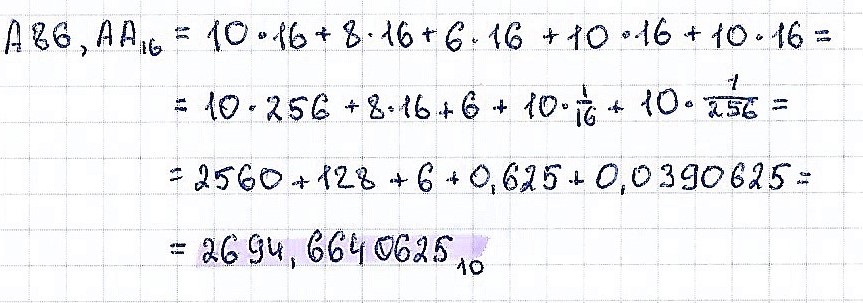 A86,AA₁₆ = 10·16+8·16+6·16+10·16+10·16=
=10·256+8·16+6+10·1/16+10·1/256=
=2560+128+6+0,625+0,0390625=
=2694,6640625₁₀